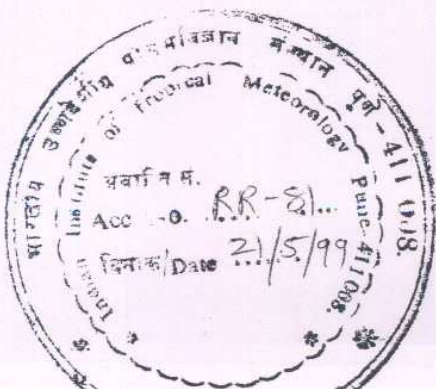 भारतीय उष्णदेशीय संस्थान पुणे -411 008.
Indian Institute of Tropical Meteorology Pune.411008.
Acc O. RR-81
दिनांक/Date 21/5/99